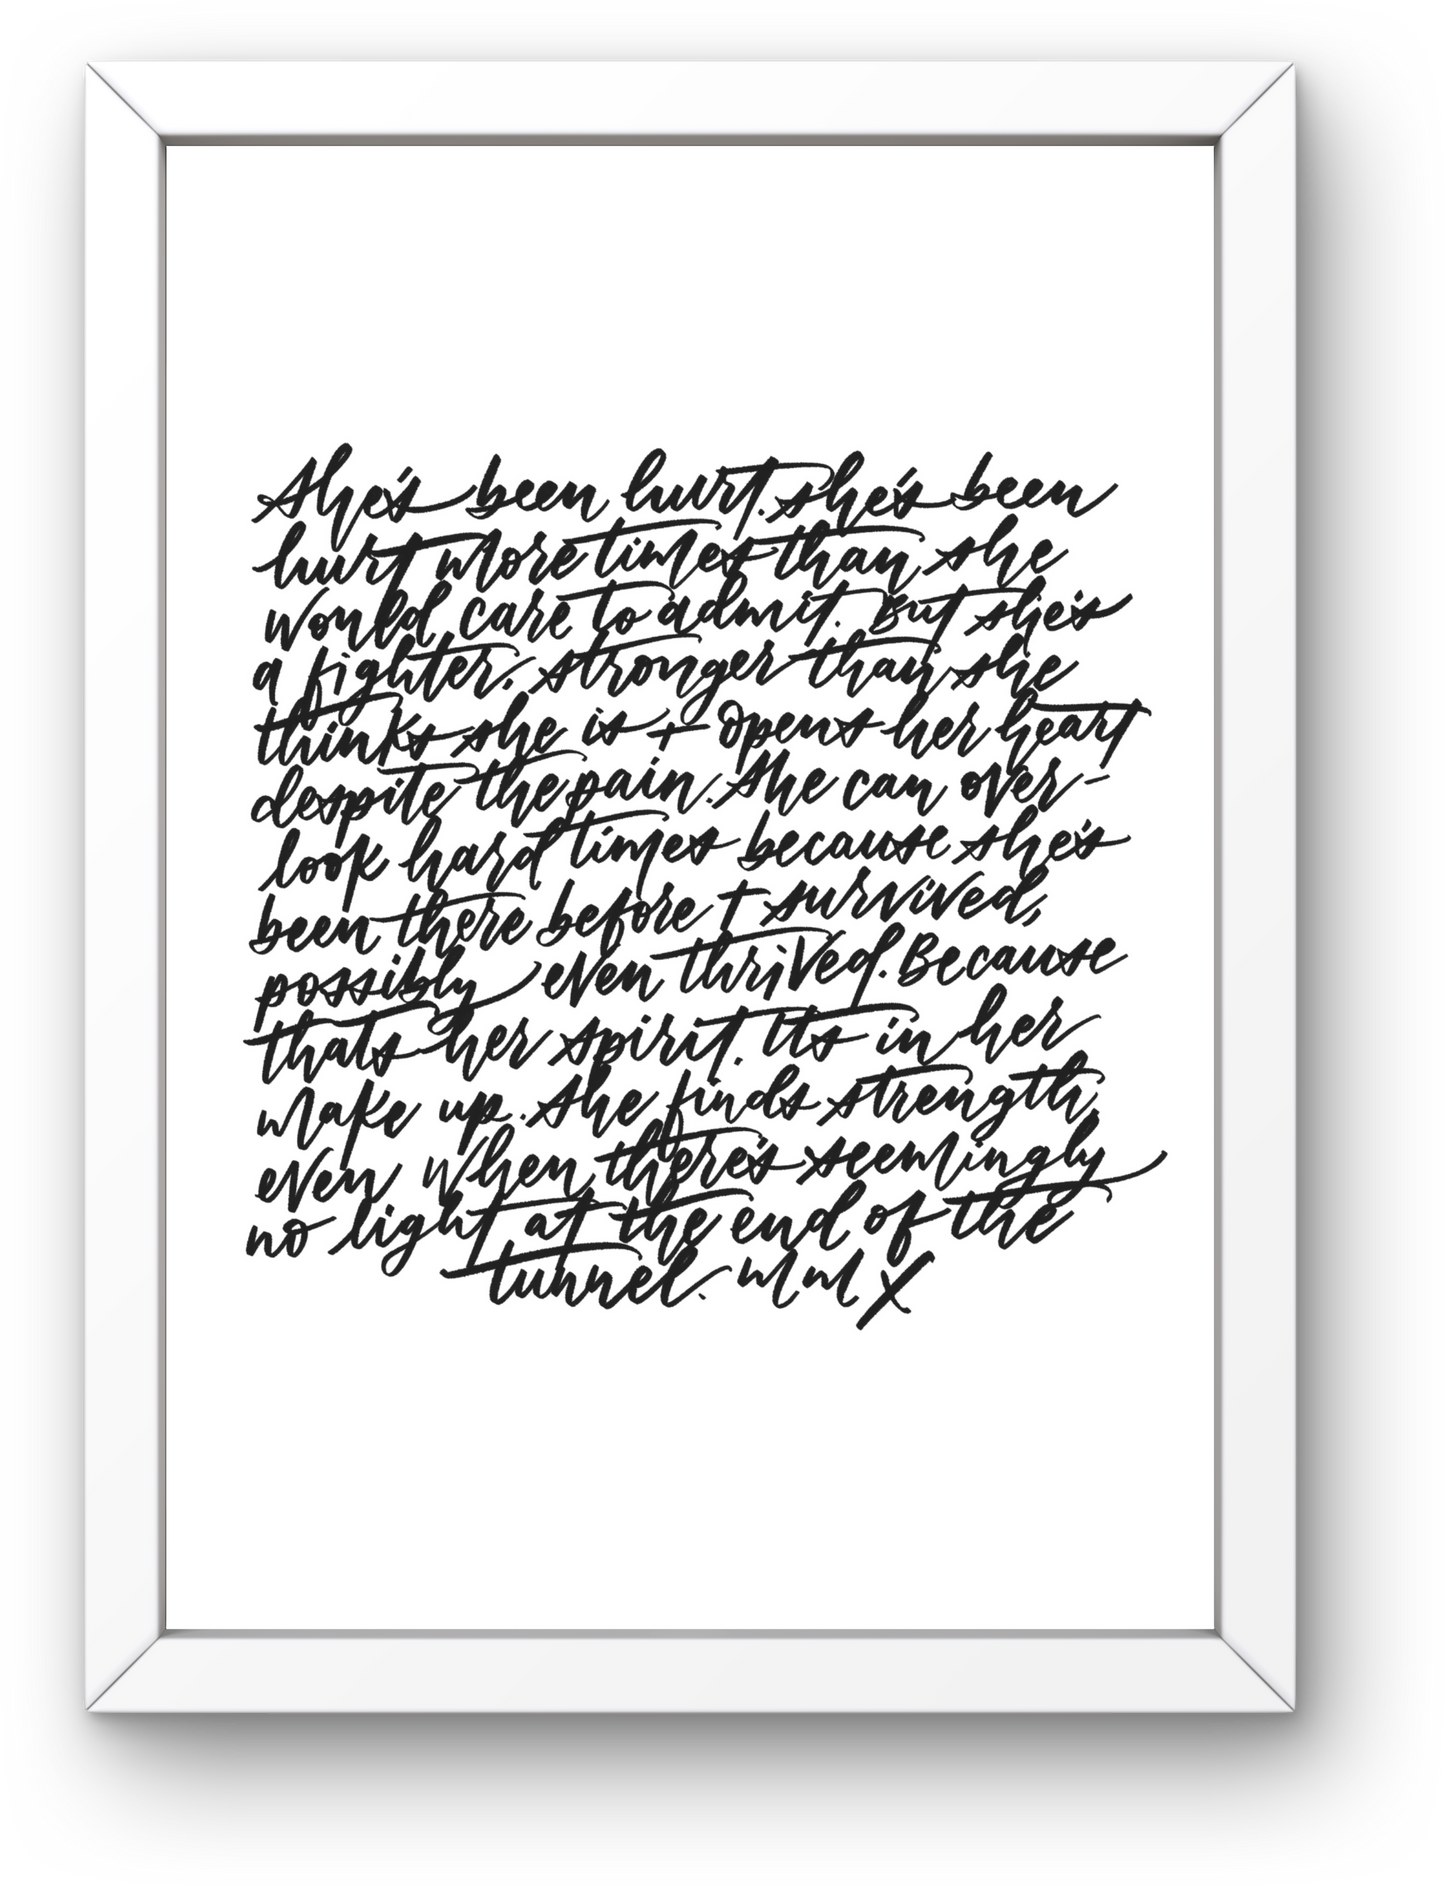 She's been hurt. She's been
hurt more times than she
would care to admit. But she's
a fighter, stronger than she
thinks she is + opens her heart
despite the pain. She can over-
look hard times because she's
been there before + survived,
possibly even thrived. Because
thats her spirit. Its in her
make up. She finds strength,
even when there's seemingly
no light at the end of the
tunnel. MMX